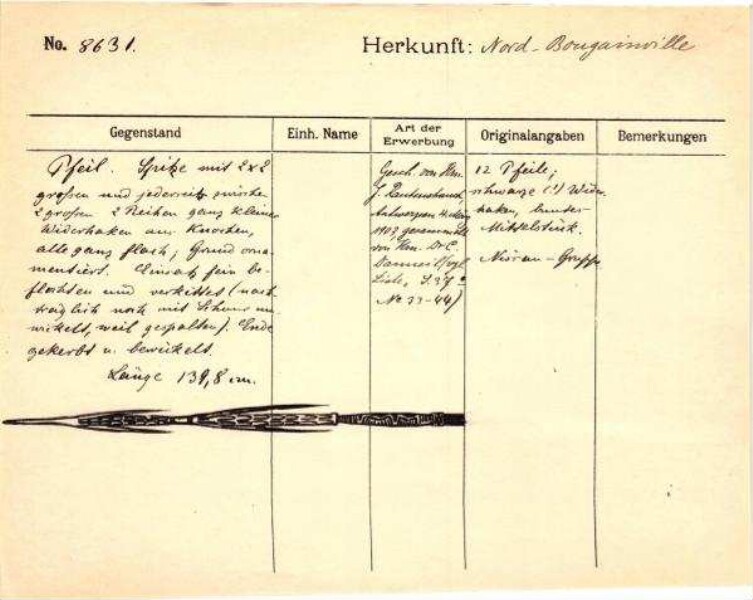 No. 8631.
Herkunft: Nord-Bougainville
Gegenstand
Einh. Name
Art der Erwerbung
Originalangaben
Bemerkungen
Pfeil. Spitze mit 2x2
großen und jederseits zwischen
2 großen 2 Reihen ganz kleiner
Widerhaken aus Knochen,
alle ganz flach; Grund orna-
mentiert. Einsatz fein be-
flochten und verkittet (nach-
träglich noch mit Schnur um-
wickelt, weil gespalten). Ende
gekerbt u. bewickelt.
Länge 139,8 cm.
Gesch. von Hrn.
J. Rautenstrauch,
Antwerpen
1903 gesammelt
von Hrn. Dr. C.
Danneil (vgl.
Liste, S. 37
No 33-44)
12 Pfeile;
schwarze (!) Wider-
haken, bunter
Mittelstück.
Nissan-Gruppe